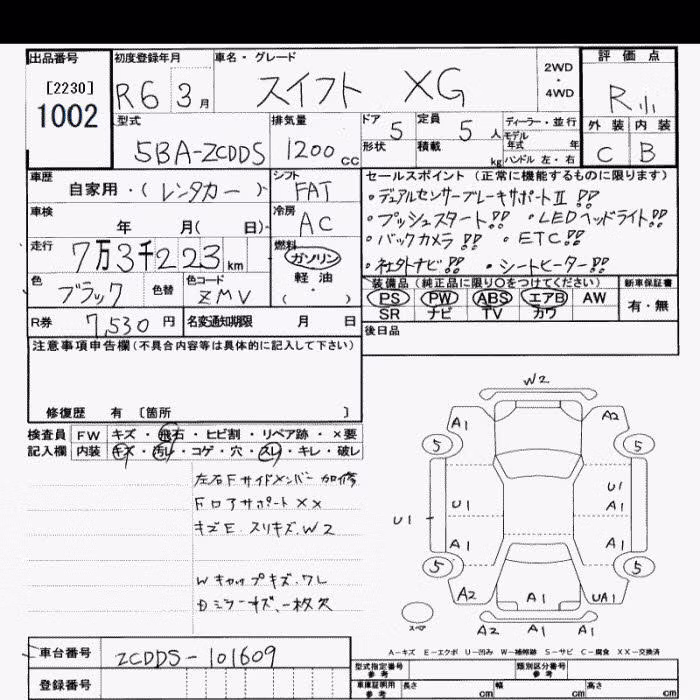 出品番号
[2230]
1002
初度登録年月
R6 3月
車名・グレード
スイフト XG
2WD
・
4WD
評価点
R
外装 内装
C B
型式
5BA-ZCDDS
排気量
1200 cc
ドア 5
定員 5人
形状
積載 kg
ディーラー・並行
モデル年式 年
ハンドル 左・右
車歴
自家用・(レンタカー)
シフト
FAT
車検
年 月( 日)
冷房
AC
走行
7万3千223km
燃料
ガソリン
軽油
( )
色
ブラック
色替
色コード
ZMV
R券
7,530円
名変通知期限 月 日
セールスポイント(正常に機能するものに限ります)
・デュアルセンサーブレーキサポートⅡ!!
・プッシュスタート!! ・LEDヘッドライト!!
・バックカメラ!! ・ETC!!
・社外ナビ!! ・シートヒーター!!
装備品(純正品に限り○をつけてください)
PS PW ABS エアB AW
SR ナビ TV カワ
新車保証書
有・無
後日品
注意事項申告欄(不具合内容等は具体的に記入して下さい)
修復歴 有 〔箇所 〕
検査員 FW キズ・飛石・ヒビ割・リペア跡・×要
記入欄 内装 キズ・汚レ・コゲ・穴・スレ・キレ・破レ
左右Fサイドメンバー加修
Fロアサポート××
キズE.スリキズ.W2
Wキャップキズ.ワレ
ミラーキズ.一枚欠
W2
A1 A2
5 5
U1 U1
A1
U1
A1 A1
5 5
A2 A1 UA1
スペア
A2 A1 A1
A-キズ E-エクボ U-凹み W-補修跡 S-サビ C-腐食 XX-交換済
車台番号
ZCDDS-101609
登録番号
型式指定番号
参考
類別区分番号
参考
車庫証明用
参考
長さ cm
幅 cm
高さ cm